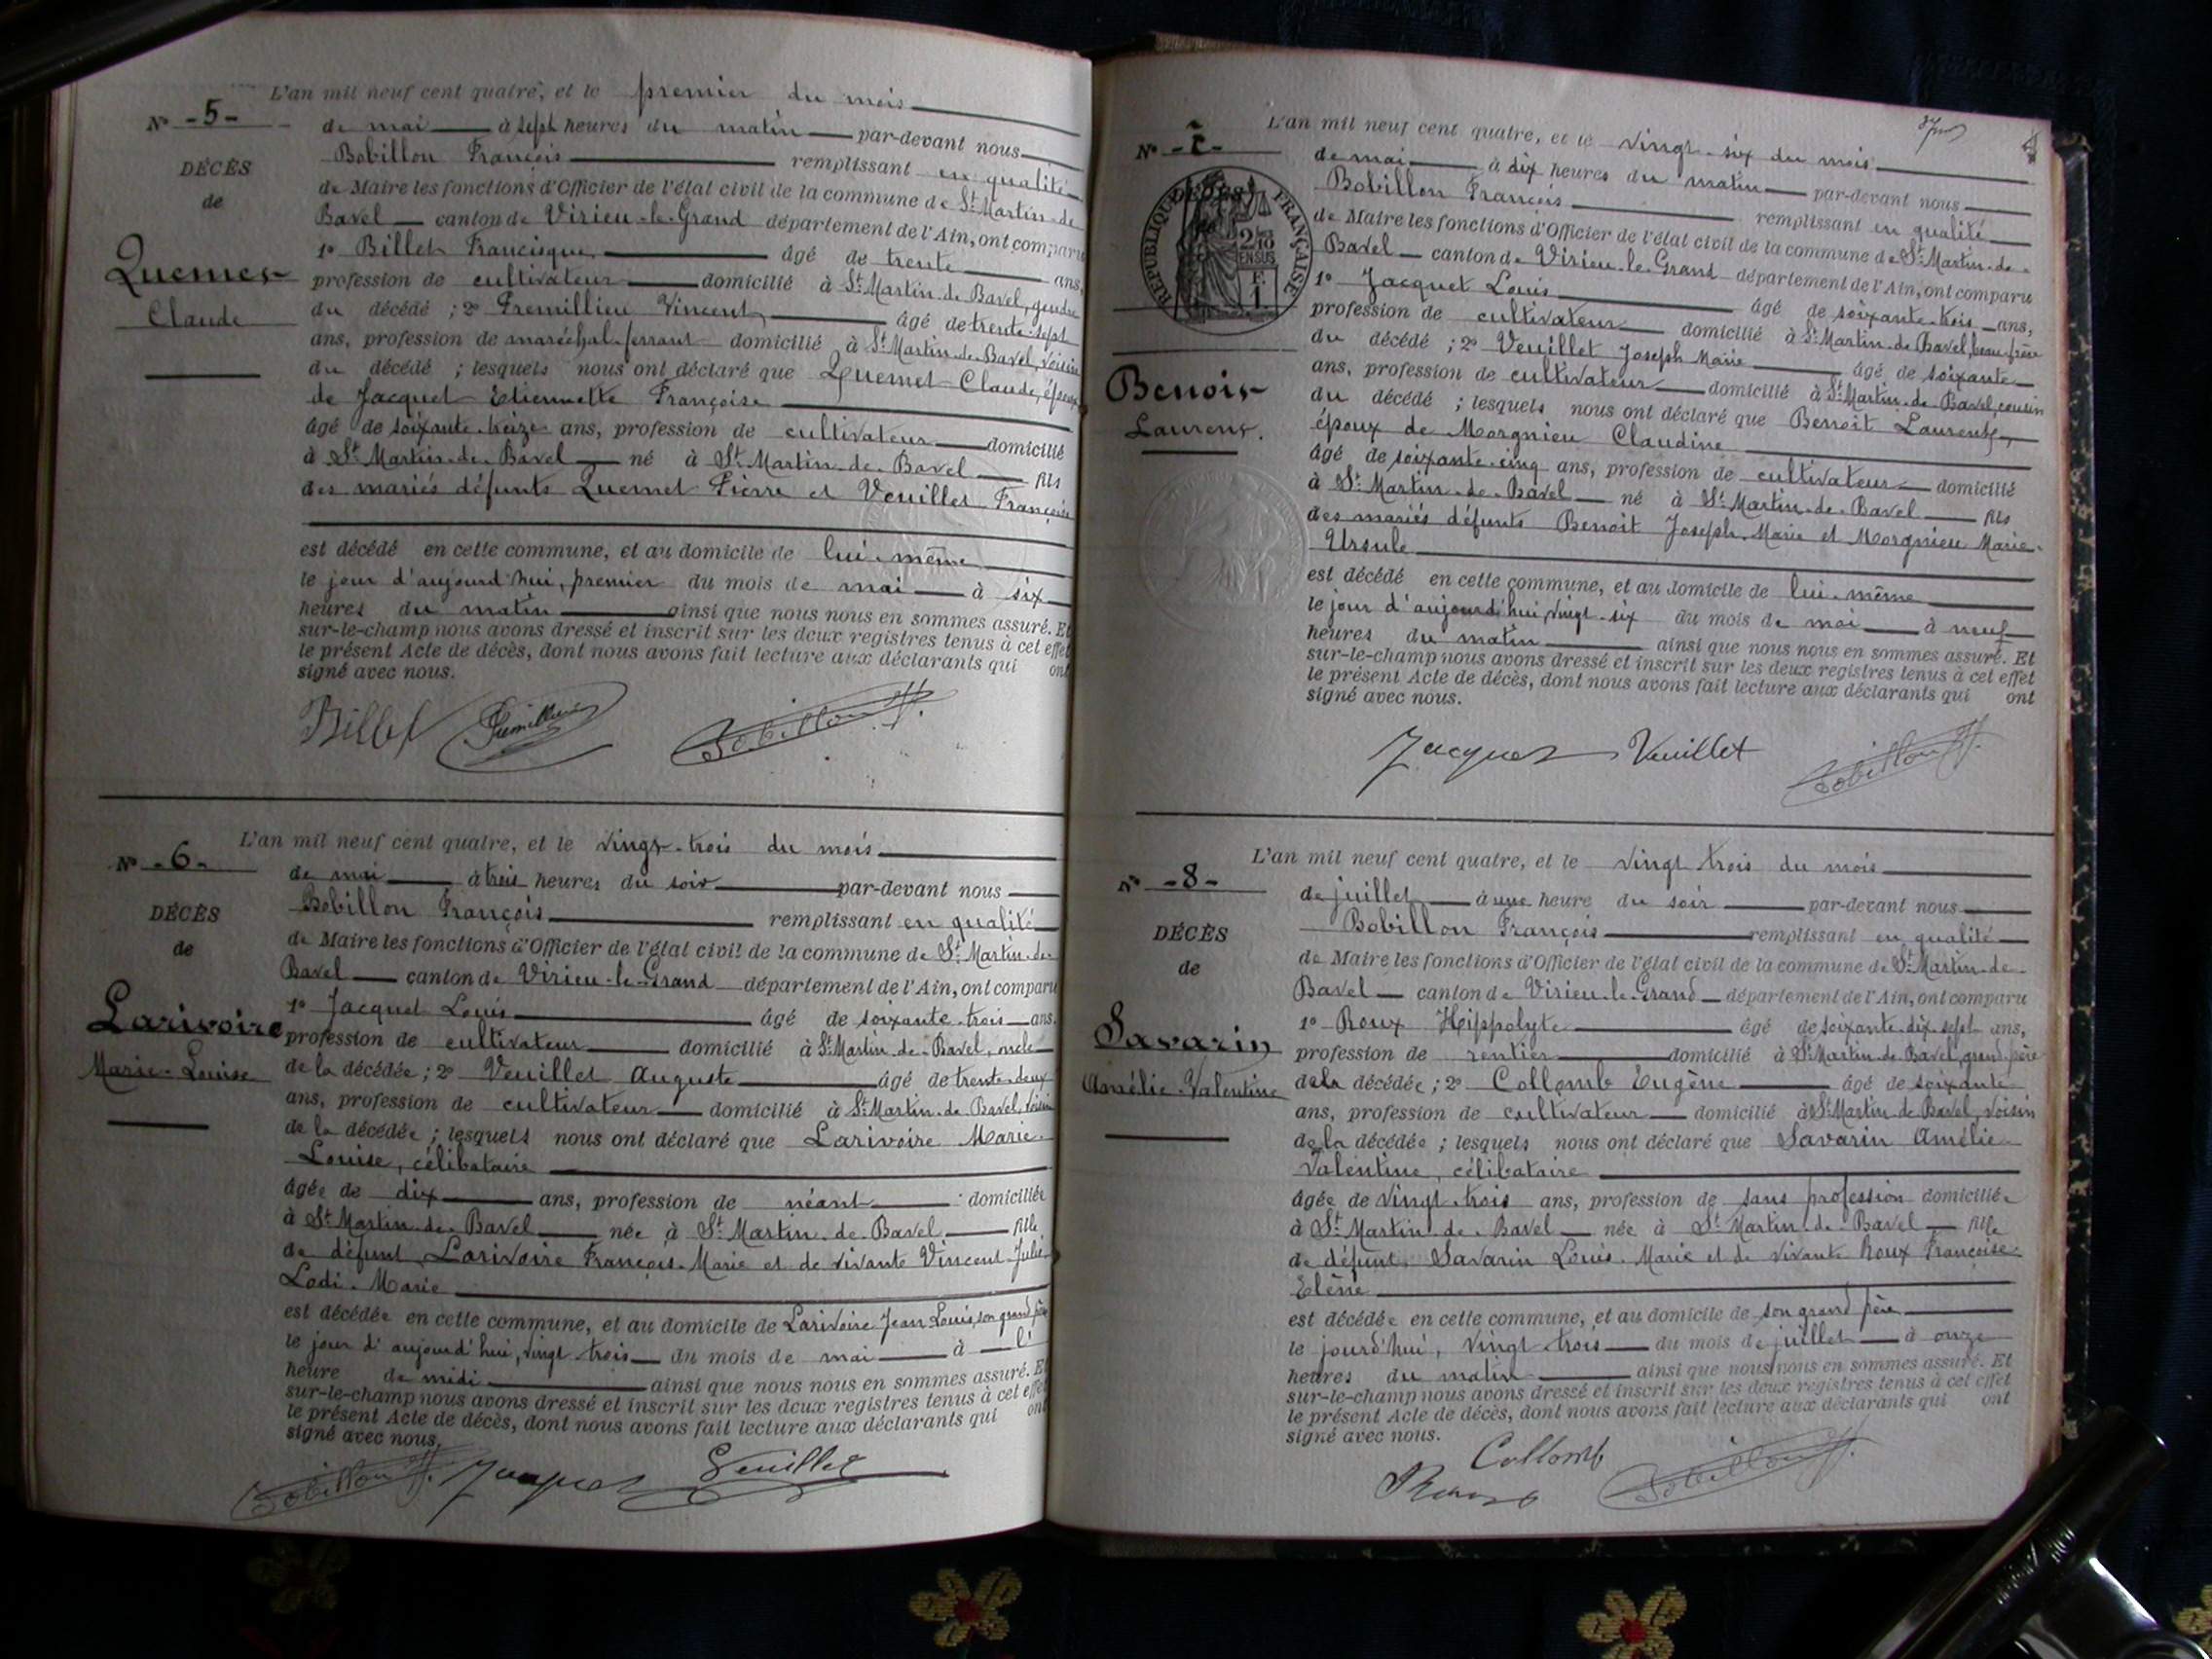 L'an mil neuf cent quatre, et le premier du mois
N° -5-
de mai à sept heures du matin par-devant nous
Bobillon François remplissant en qualité
DÉCÈS
de Maire les fonctions d'Officier de l'état civil de la commune de St Martin-de-
de
Bavel canton de Virieu-le-Grand département de l'Ain, ont comparu
1° Billet Francisque âgé de trente ans,
Quemet
profession de cultivateur domicilié à St Martin-de-Bavel, gendre
Claude
du décédé ; 2° Fremillieu Vincent, âgé de trente-sept
ans, profession de maréchal-ferrant domicilié à St Martin-de-Bavel, voisin
du décédé ; lesquels nous ont déclaré que Quemet Claude, époux
de Jacquet Etiennette Françoise
âgé de soixante-treize ans, profession de cultivateur domicilié
à St Martin-de-Bavel né à St Martin-de-Bavel fils
des mariés défunts Quemet Pierre et Veuillet Françoise
est décédé en cette commune, et au domicile de lui-même
le jour d'aujourd'hui, premier du mois de mai à six
heures du matin ainsi que nous nous en sommes assuré. Et
sur-le-champ nous avons dressé et inscrit sur les deux registres tenus à cet effet
le présent Acte de décès, dont nous avons fait lecture aux déclarants qui ont
signé avec nous.
Billet Fremillieu Bobillon F.
L'an mil neuf cent quatre, et le vingt-trois du mois
N° -6-
de mai à trois heures du soir par-devant nous
Bobillon François remplissant en qualité
DÉCÈS
de Maire les fonctions d'Officier de l'état civil de la commune de St Martin-de-
de
Bavel canton de Virieu-le-Grand département de l'Ain, ont comparu
1° Jacquet Louis âgé de soixante-trois ans,
Larivoire
profession de cultivateur domicilié à St Martin-de-Bavel, oncle
Marie-Louise
de la décédée ; 2° Veuillet Auguste âgé de trente-deux
ans, profession de cultivateur domicilié à St Martin-de-Bavel, voisin
de la décédée ; lesquels nous ont déclaré que Larivoire Marie-
Louise, célibataire
âgée de dix ans, profession de néant domiciliée
à St Martin-de-Bavel née à St Martin-de-Bavel fille
de défunt Larivoire François-Marie et de vivante Vincent Julie
Lodi-Marie
est décédée en cette commune, et au domicile de Larivoire Jean-Louis, son grand père
le jour d'aujourd'hui, vingt-trois du mois de mai à l'
heure de midi ainsi que nous nous en sommes assuré. Et
sur-le-champ nous avons dressé et inscrit sur les deux registres tenus à cet effet
le présent Acte de décès, dont nous avons fait lecture aux déclarants qui ont
signé avec nous.
Bobillon F. Jacquet Veuillet
L'an mil neuf cent quatre, et le vingt-six du mois
N° -7-
de mai à dix heures du matin par-devant nous
Bobillon François remplissant en qualité
DÉCÈS
RÉPUBLIQUE FRANÇAISE
2/10 EN SUS
de Maire les fonctions d'Officier de l'état civil de la commune de St Martin-de-
Bavel canton de Virieu-le-Grand département de l'Ain, ont comparu
1° Jacquet Louis âgé de soixante-trois ans,
profession de cultivateur domicilié à St Martin-de-Bavel, beau-frère
du décédé ; 2° Veuillet Joseph Marie âgé de soixante
Benoit
Laurent.
ans, profession de cultivateur domicilié à St Martin-de-Bavel, cousin
du décédé ; lesquels nous ont déclaré que Benoit Laurent,
époux de Morgnieu Claudine
âgé de soixante-cinq ans, profession de cultivateur domicilié
à St Martin-de-Bavel né à St Martin-de-Bavel fils
des mariés défunts Benoit Joseph-Marie et Morgnieu Marie-
Ursule
est décédé en cette commune, et au domicile de lui-même
le jour d'aujourd'hui, vingt-six du mois de mai à neuf
heures du matin ainsi que nous nous en sommes assuré. Et
sur-le-champ nous avons dressé et inscrit sur les deux registres tenus à cet effet
le présent Acte de décès, dont nous avons fait lecture aux déclarants qui ont
signé avec nous.
Jacquet Veuillet Bobillon F.
L'an mil neuf cent quatre, et le vingt trois du mois
N° -8-
de juillet à une heure du soir par-devant nous
Bobillon François remplissant en qualité
DÉCÈS
de Maire les fonctions d'Officier de l'état civil de la commune de St Martin-de-
de
Bavel canton de Virieu-le-Grand département de l'Ain, ont comparu
1° Roux Hippolyte âgé de soixante-dix-sept ans,
Savarin
profession de rentier domicilié à St Martin-de-Bavel, grand-père
Amélie-Valentine
de la décédée ; 2° Collomb Eugène âgé de soixante
ans, profession de cultivateur domicilié à St Martin-de-Bavel, voisin
de la décédée ; lesquels nous ont déclaré que Savarin Amélie-
Valentine, célibataire
âgée de vingt-trois ans, profession de sans profession domiciliée
à St Martin-de-Bavel née à St Martin-de-Bavel fille
de défunt Savarin Louis-Marie et de vivante Roux Françoise-
Elène
est décédée en cette commune, et au domicile de son grand père
le jourd'hui, vingt-trois du mois de juillet à onze
heures du matin ainsi que nous nous en sommes assuré. Et
sur-le-champ nous avons dressé et inscrit sur les deux registres tenus à cet effet
le présent Acte de décès, dont nous avons fait lecture aux déclarants qui ont
signé avec nous.
Collomb
Roux Bobillon F.